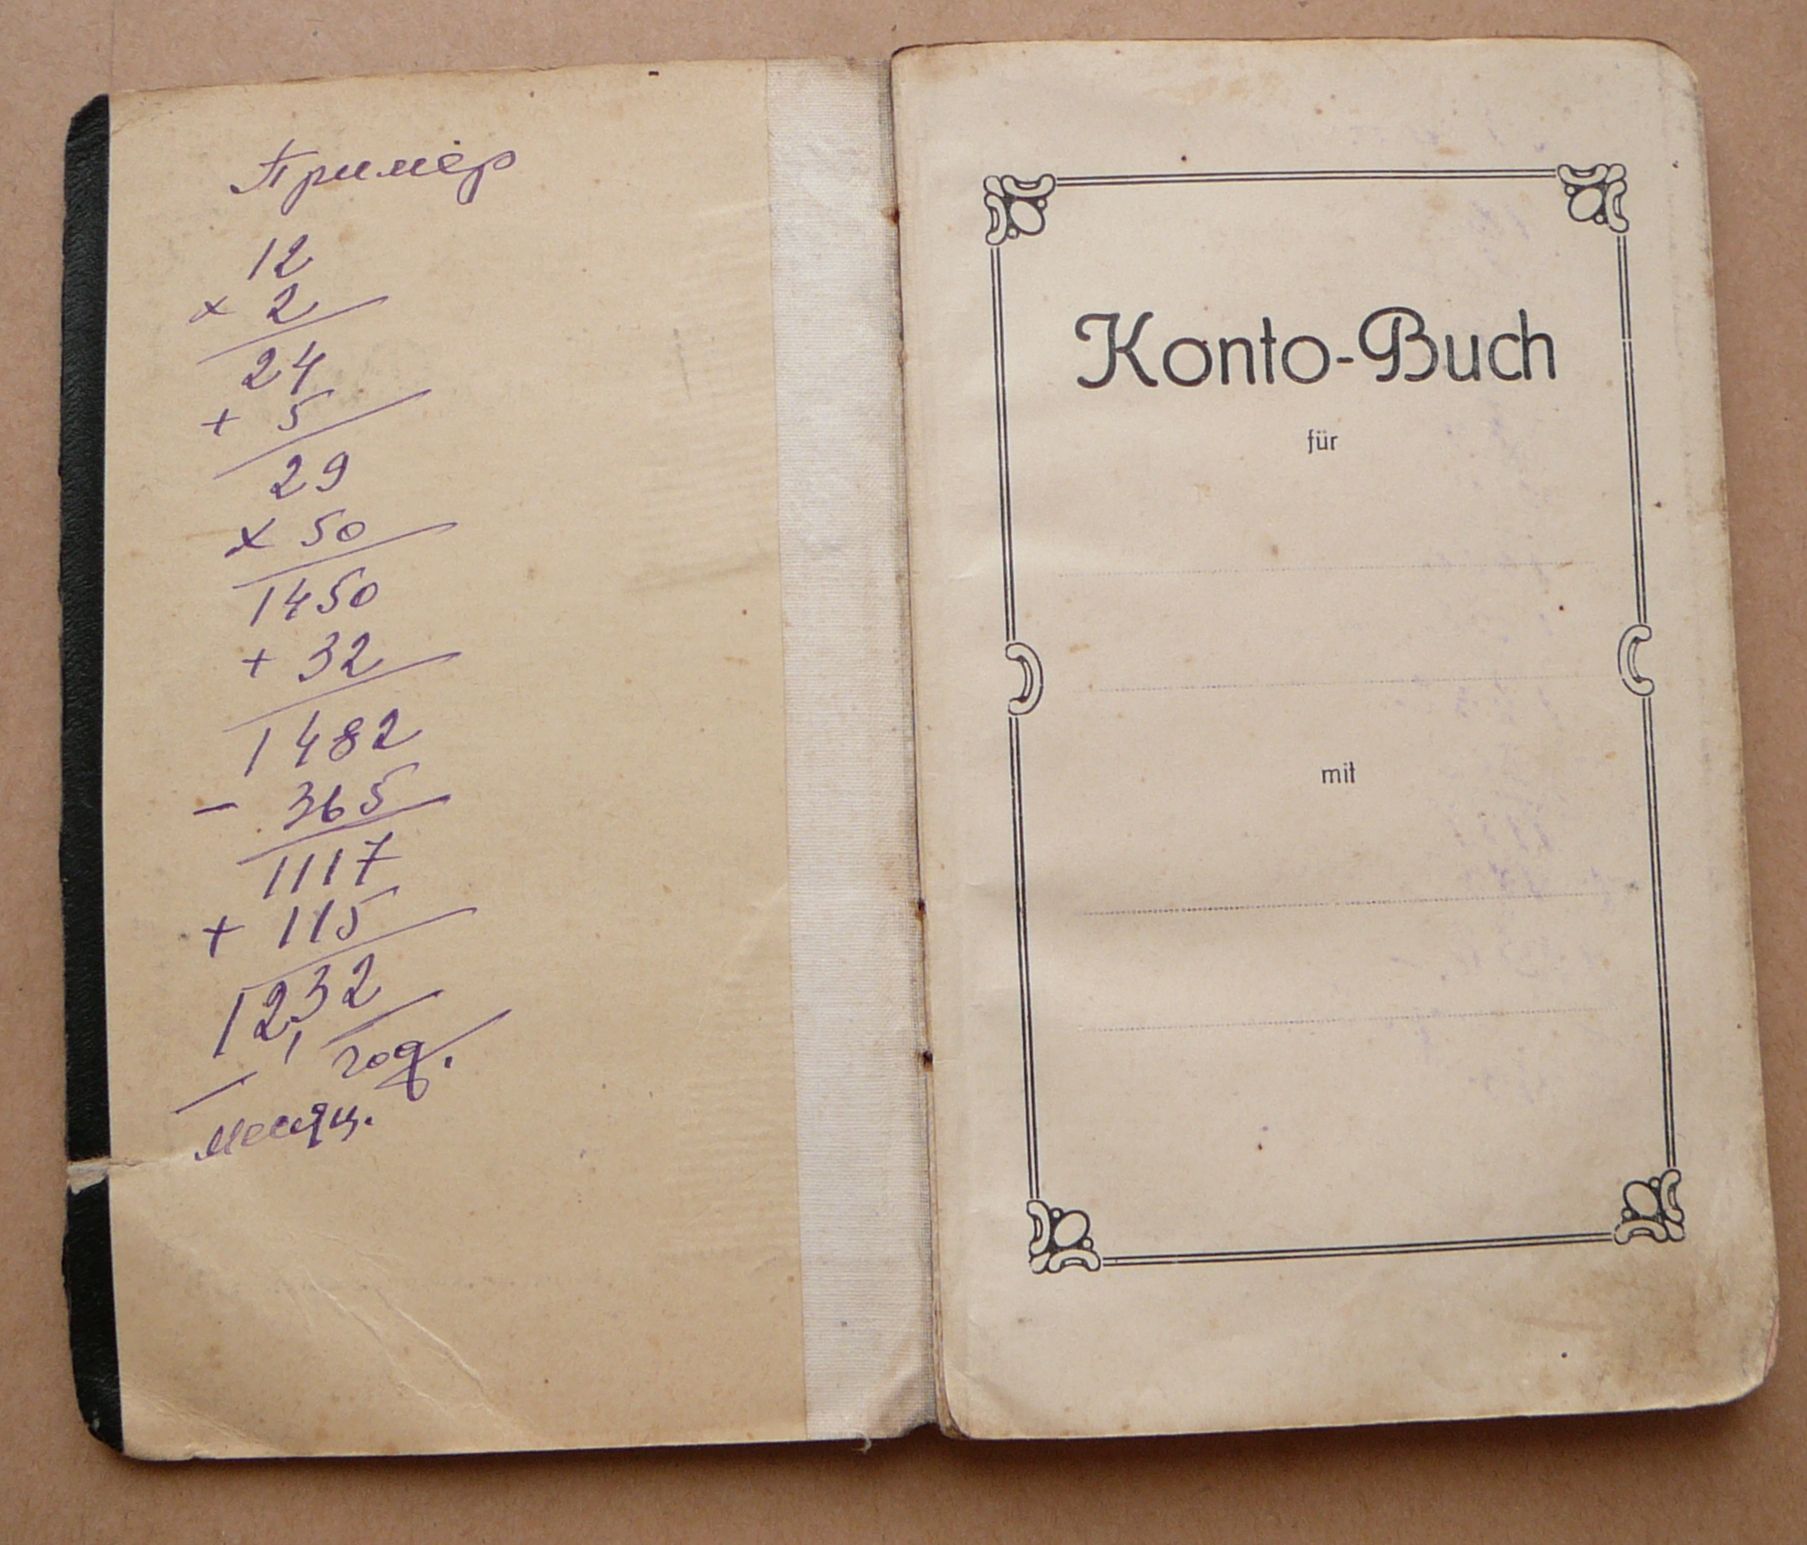 Пример
12
× 2
24
+ 5
29
× 50
1450
+ 32
1482
- 365
1117
+ 115
1232
год.
месяц.
Konto-Buch
für
mit